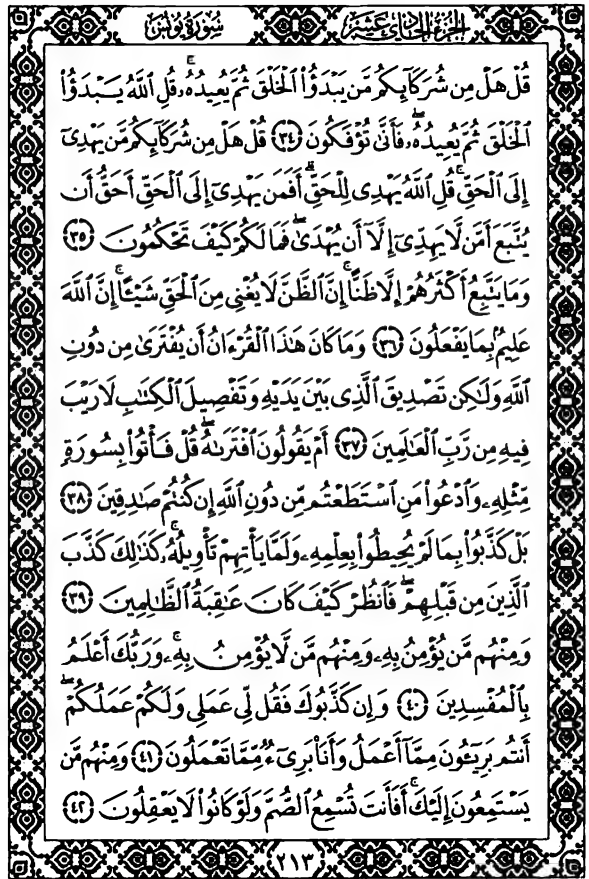 الجزء الحادي عشر
سورة يونس
قُلْ هَلْ مِن شُرَكَآئِكُم مَّن يَبْدَؤُا۟ ٱلْخَلْقَ ثُمَّ يُعِيدُهُۥ ۚ قُلِ ٱللَّهُ يَبْدَؤُا۟
ٱلْخَلْقَ ثُمَّ يُعِيدُهُۥ ۖ فَأَنَّىٰ تُؤْفَكُونَ ﴿٣٤﴾ قُلْ هَلْ مِن شُرَكَآئِكُم مَّن يَهْدِىٓ
إِلَى ٱلْحَقِّ ۚ قُلِ ٱللَّهُ يَهْدِى لِلْحَقِّ ۗ أَفَمَن يَهْدِىٓ إِلَى ٱلْحَقِّ أَحَقُّ أَن
يُتَّبَعَ أَمَّن لَّا يَهِدِّىٓ إِلَّآ أَن يُهْدَىٰ ۖ فَمَا لَكُمْ كَيْفَ تَحْكُمُونَ ﴿٣٥﴾
وَمَا يَتَّبِعُ أَكْثَرُهُمْ إِلَّا ظَنًّا ۚ إِنَّ ٱلظَّنَّ لَا يُغْنِى مِنَ ٱلْحَقِّ شَيْـًٔا ۚ إِنَّ ٱللَّهَ
عَلِيمٌۢ بِمَا يَفْعَلُونَ ﴿٣٦﴾ وَمَا كَانَ هَٰذَا ٱلْقُرْءَانُ أَن يُفْتَرَىٰ مِن دُونِ
ٱللَّهِ وَلَٰكِن تَصْدِيقَ ٱلَّذِى بَيْنَ يَدَيْهِ وَتَفْصِيلَ ٱلْكِتَٰبِ لَا رَيْبَ
فِيهِ مِن رَّبِّ ٱلْعَٰلَمِينَ ﴿٣٧﴾ أَمْ يَقُولُونَ ٱفْتَرَىٰهُ ۖ قُلْ فَأْتُوا۟ بِسُورَةٍ
مِّثْلِهِۦ وَٱدْعُوا۟ مَنِ ٱسْتَطَعْتُم مِّن دُونِ ٱللَّهِ إِن كُنتُمْ صَٰدِقِينَ ﴿٣٨﴾
بَلْ كَذَّبُوا۟ بِمَا لَمْ يُحِيطُوا۟ بِعِلْمِهِۦ وَلَمَّا يَأْتِهِمْ تَأْوِيلُهُۥ ۚ كَذَٰلِكَ كَذَّبَ
ٱلَّذِينَ مِن قَبْلِهِمْ ۖ فَٱنظُرْ كَيْفَ كَانَ عَٰقِبَةُ ٱلظَّٰلِمِينَ ﴿٣٩﴾
وَمِنْهُم مَّن يُؤْمِنُ بِهِۦ وَمِنْهُم مَّن لَّا يُؤْمِنُ بِهِۦ ۚ وَرَبُّكَ أَعْلَمُ
بِٱلْمُفْسِدِينَ ﴿٤٠﴾ وَإِن كَذَّبُوكَ فَقُل لِّى عَمَلِى وَلَكُمْ عَمَلُكُمْ ۖ
أَنتُم بَرِيٓـُٔونَ مِمَّآ أَعْمَلُ وَأَنَا۠ بَرِىٓءٌ مِّمَّا تَعْمَلُونَ ﴿٤١﴾ وَمِنْهُم مَّن
يَسْتَمِعُونَ إِلَيْكَ ۚ أَفَأَنتَ تُسْمِعُ ٱلصُّمَّ وَلَوْ كَانُوا۟ لَا يَعْقِلُونَ ﴿٤٢﴾
٢١٣